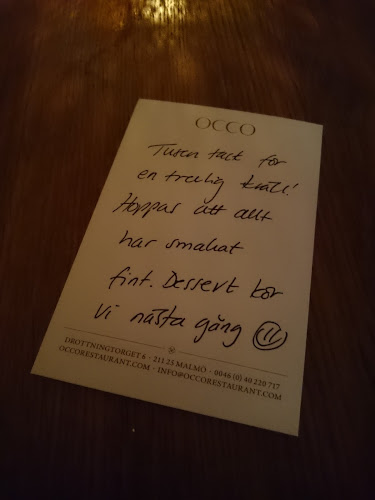 OCCO
Tusen tack for
en trevlig kväll!
Hoppas att allt
har smakat
fint. Dessert kor
vi nästa gång
DROTTNINGTORGET 6 - 211 25 MALMÖ - 0046 (0) 40 220 717
OCCORESTAURANT.COM - INFO@OCCORESTAURANT.COM